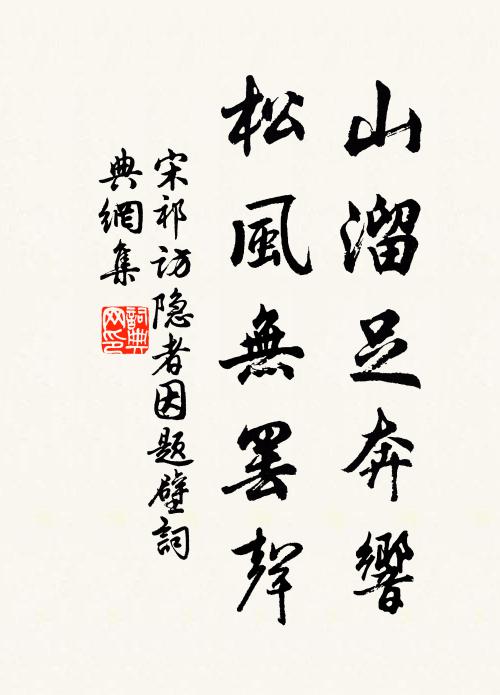 山溜足奔響
松風無罢聲
宋祁访隐者因题壁詞
典網集
詞典网印